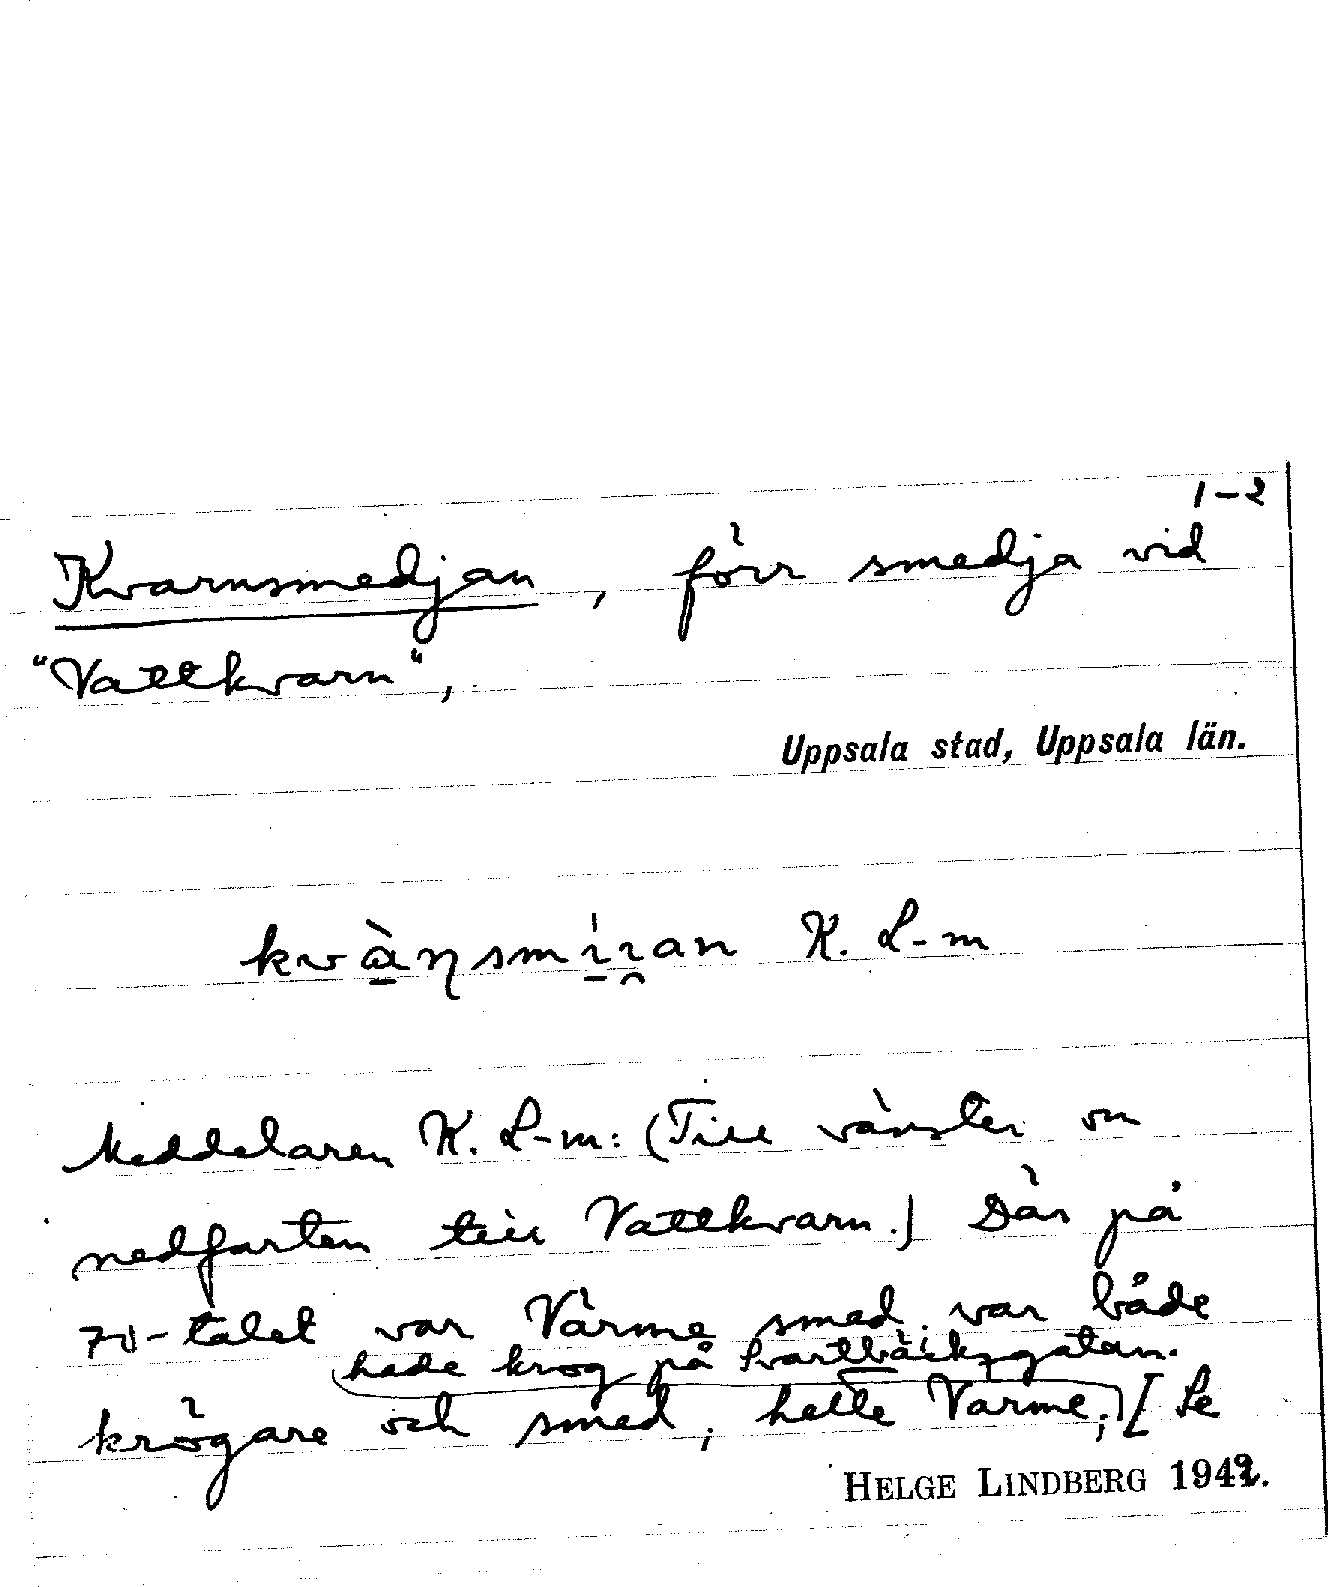 1-2
Kvarnsmedjan, förr smedja vid
"Vattkvarn",
Uppsala stad, Uppsala län.
K. L-m
Meddelaren K. L-m: (Till vänster om
nedfarten till Vattkvarn.) Där på
70-talet var Värme smed. var både
hade krog på Svartbäcksgatan.
krögare och smed, hette Värme; [Se
HELGE LINDBERG 1942.